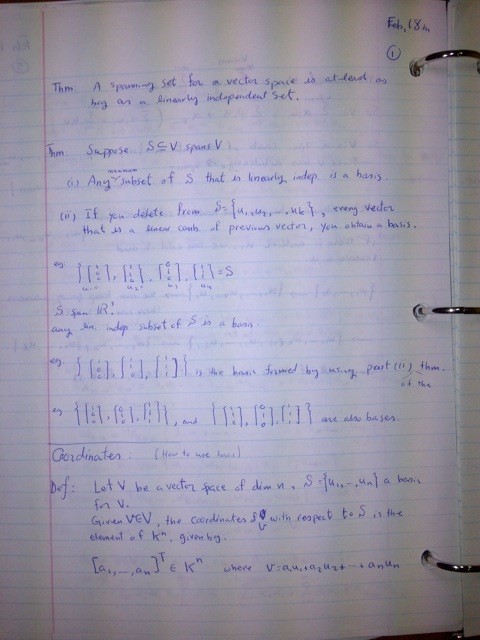 Feb, 18th
①
Thm A spanning set for a vector space is at least as
big as a linearly independent set.
Thm. Suppose S⊆V spans V
(i) Any maximal subset of S that is linearly indep. is a basis.
(ii) If you delete from S={u₁,u₂,...,uₖ}, every vector
that is a linear comb. of previous vector, you obtain a basis.
eg. =S
u₁ u₂ u₃ u₄
S span ℝ³
any lin. indep subset of S is a basis
eg. is the basis formed by using part (ii) thm.
of the
eg. , and are also bases.
Coordinates: (How to use basis)
Def: Let V be a vector space of dim n, S={u₁,...,uₙ} a basis
for V.
Given V∈V, the coordinates of V with respect to S is the
element of Kⁿ, given by
[a₁,...,aₙ]ᵀ ∈ Kⁿ where V=a₁u₁+a₂u₂+...+aₙuₙ